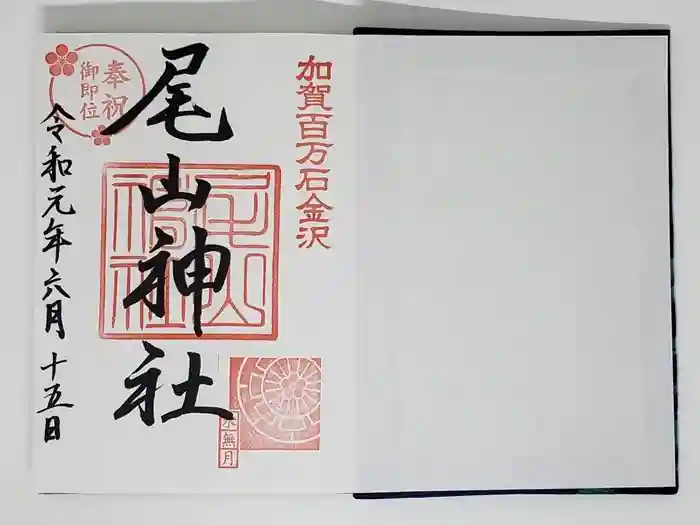 加賀百万石金沢
尾山神社
尾山神社
水無月
奉祝
御即位
令和元年六月十五日